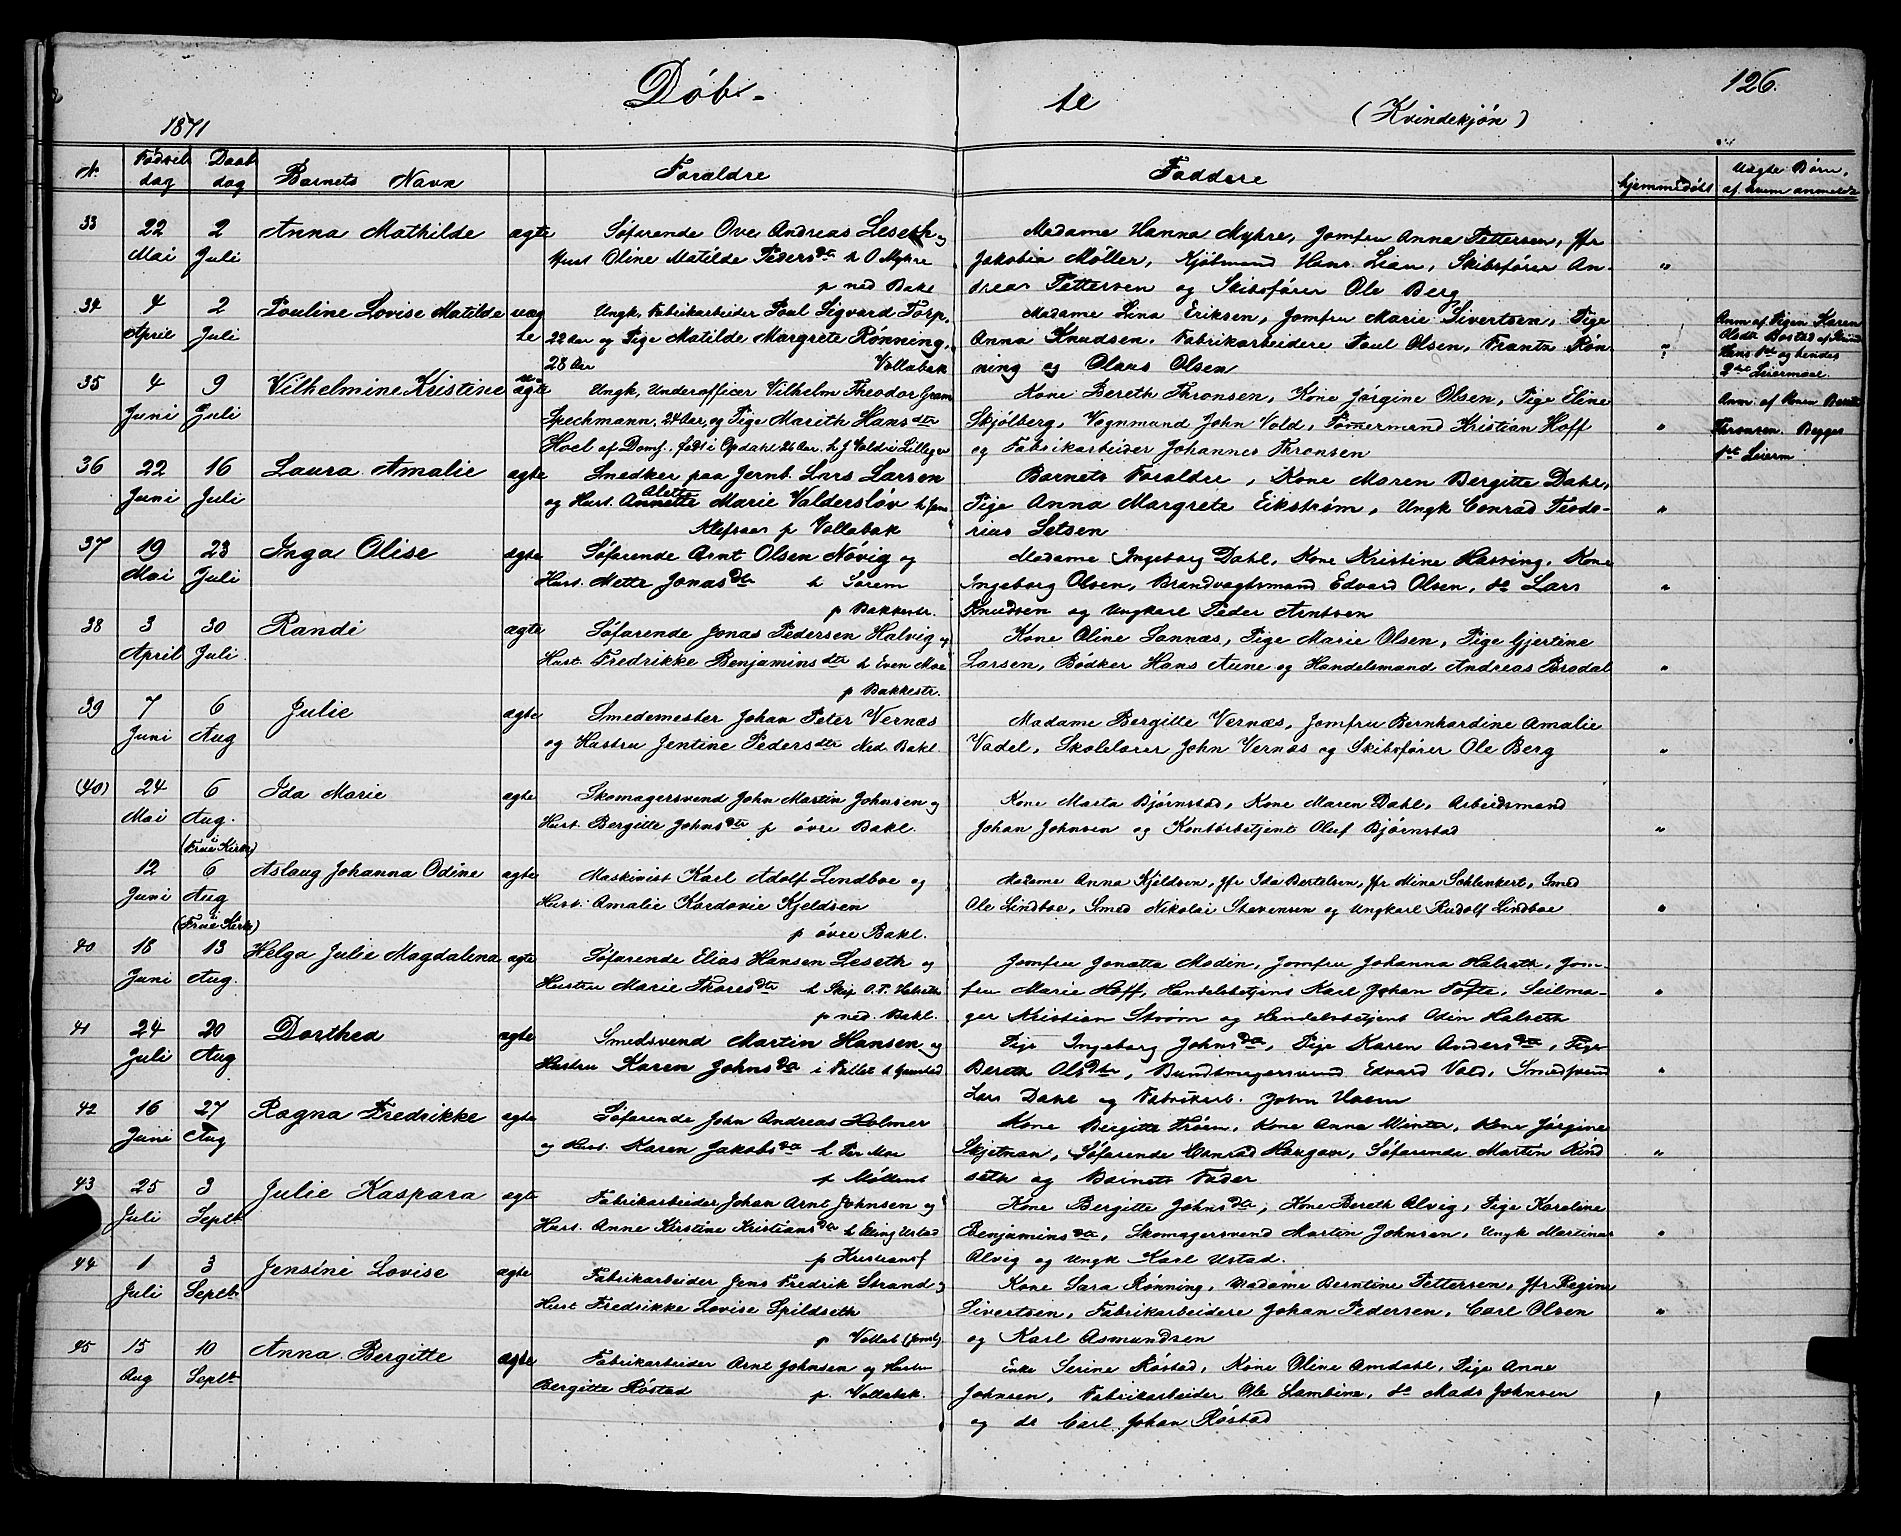 Døbte
126.
(Kvindekjøn)
1871
N. Fødsels dag Daab dag Barnets Navn Foraldre Faddere hjemmedøbt Uægte Børn, af hvem anmeldte
33 22 Mai 2 Juli Anna Mathilde ægte Søfarende Ove Andreas Leseth og
Hust. Oline Matilde Pedersdtr h O Myhre
p ned Bakl
Madame Hanna Myhre, Jomfru Anna Pettersen, Jfr
Jakobia Møller, Kjøbmand Hans Lian, Skibsfører An-
dreas Pettersen og Skibsfører Ole Berg "
34 4 April 2 Juli Pouline Lovise Matilde uægte Ungk. Fabrikarbeider Poul Sigvard Torp,
22 Aar og Pige Matilde Margrete Rønning,
28 Aar Vollabak
Madame Lina Eriksen, Jomfru Marie Sivertsen, Pige
Anna Knudsen, Fabrikarbeidere Poul Olsen, Frantz Røn-
ning og Olaus Olsen "
Anm. af Pigen Karen
Olsdtr Bostad af
Hans 1ste og hendes
2det Leiermaal.
35 4 Juni 9 Juli Vilhelmine Kristine uægte Ungk. Underofficer Vilhelm Theodor Gram
Spechmann, 24 Aar, og Pige Marith Hansdtr
Hoel af Domf. født i Opdahl 25 Aar. h J Vold i Lillegr
Kone Bereth Thronsen, Kone Jørgine Olsen, Pige Eline
Skjølberg, Vognmand John Vold, Tømermand Kristian Hoff
og Fabrikarbeider Johannes Thronsen "
Anm. af Konen Bereth
Thronsen. Begges
1ste Leierm
36 22 Juni 16 Juli Laura Amalie ægte Snedker paa Jernb. Lars Larsen
og Hust. Annette Alette Marie Valdersløv h Jens
Klefsaas p Vollabak
Barnets Foraldre, Kone Maren Bergitte Dahl,
Pige Anna Margrete Eikstrøm, Ungk Conrad Teodo-
rius Setsen "
37 19 Mai 23 Juli Inga Olise ægte Søfarende Arnt Olsen Nøvig og
Hust. Mette Jonasdtr h Sørem
p Bakkestr.
Madame Ingeborg Dahl, Kone Kristine Hasving, Kone
Ingeborg Olsen, Brandvagtsmand Edvard Olsen, do Lars
Knudsen og Ungkarl Peder Arntsen "
38 3 April 30 Juli Randi ægte Søfarende Jonas Pedersen Halvig og
Hust. Fredrikke Benjaminsdtr h Even Moe
p Bakkestr.
Kone Oline Sannæs, Pige Marie Olsen, Pige Gjertine
Larsen, Bødker Hans Aune og Handelsmand Andreas Brodal "
39 7 Juni 6 Aug Julie ægte Smedemester Johan Peter Vernæs
og Hustru Jentine Pedersdtr Ned. Bakl.
Madame Bergitte Vernæs, Jomfru Bernhardine Amalie
Vadel, Skolelærer John Vernæs og Skibsfører Ole Berg "
(40) 24 Mai 6 Aug. i (Frue Kirke) Ida Marie ægte Skomagersvend John Martin Johnsen og
Hust. Bergitte Johnsdtr p øvre Bakl.
Kone Marta Bjørnstad, Kone Maren Dahl, Arbeidsmand
Johan Johnsen og Kontorbetjent Oluf Bjørnstad "
12 Juni 6 Aug i (Frue Kirke) Aslaug Johanna Odine ægte Maskinist Karl Adolf Lindboe og
Hust. Amalie Kordovie Kjeldsen
p øvre Bakl.
Madame Anna Kjeldsen, Jfr Ida Bertelsen, Jfr Mina Schlenkert, Smed
Ole Lindboe, Smed Nikolai Stevensen og Ungkarl Rudolf Lindboe "
40 18 Juni 13 Aug. Helga Julie Magdalena ægte Søfarende Elias Hansen Leseth og
Hustru Marie Thoresdtr h Skip. O. T. Halseths
p ned. Bakl.
Jomfru Jonetta Modin, Jomfru Johanna Halseth, Jom-
fru Marie Hoff, Handelsbetjent Karl Johan Tofte, Seilma-
ger Kristian Strøm og Handelsbetjent Odin Halseth "
41 24 Juli 20 Aug Dorthea ægte Smedsvend Martin Hansen og
Hustru Karen Johnsdtr i Fallet h Grønstad
Pige Ingeborg Johnsdtr, Pige Karen Andersdtr, Pige
Bereth Olsdtr, Bundtmagersvend Edvard Vold, Smedsvend
Lars Dahl og Fabrikarb. John Hoem "
42 16 Juni 27 Aug Ragna Fredrikke ægte Søfarende John Andreas Holmer
og Hust. Karen Jakobsdtr h Per Moe
p Møllenb
Kone Bergitte Trøen, Kone Anna Winter, Kone Jørgine
Skjetnan, Søfarende Conrad Haugan, Søfarende Martin Rind
seth og Barnets Fader "
43 25 Juli 3 Septb Julie Kaspara ægte Fabrikarbeider Johan Arnt Johnsen og
Hust. Anne Kirstine Kristiansdtr h Eling Ustad
p Kristiansf
Kone Bergitte Johnsdtr, Kone Bereth Alvig, Pige Karoline
Benjaminsdtr, Skomagersvend Martin Johnsen, Ungk Martinus
Alvig og Ungk Karl Ustad. "
44 1 Juli 3 Septb. Jensine Lovise ægte Fabrikarbeider Jens Fredrik Strand og
Hust Fredrikke Lovise Spildseth
p Vollab (Jonsl)
Kone Sara Rønning, Madame Berntine Pettersen, Jfr Regine
Sivertsen, Fabrikarbeidere Johan Pedersen, Carl Olsen
og Karl Asmundsen "
45 15 Aug 10 Septb. Anna Bergitte ægte Fabrikarbeider Arnt Johnsen og Hustru
Bergitte Røstad p. Vollabak.
Enke Serine Røstad, Kone Oline Amdahl, Pige Anne
Johnsen, Fabrikarbeider Ole Lambine, do Mads Johnsen
og do Carl Johan Røstad